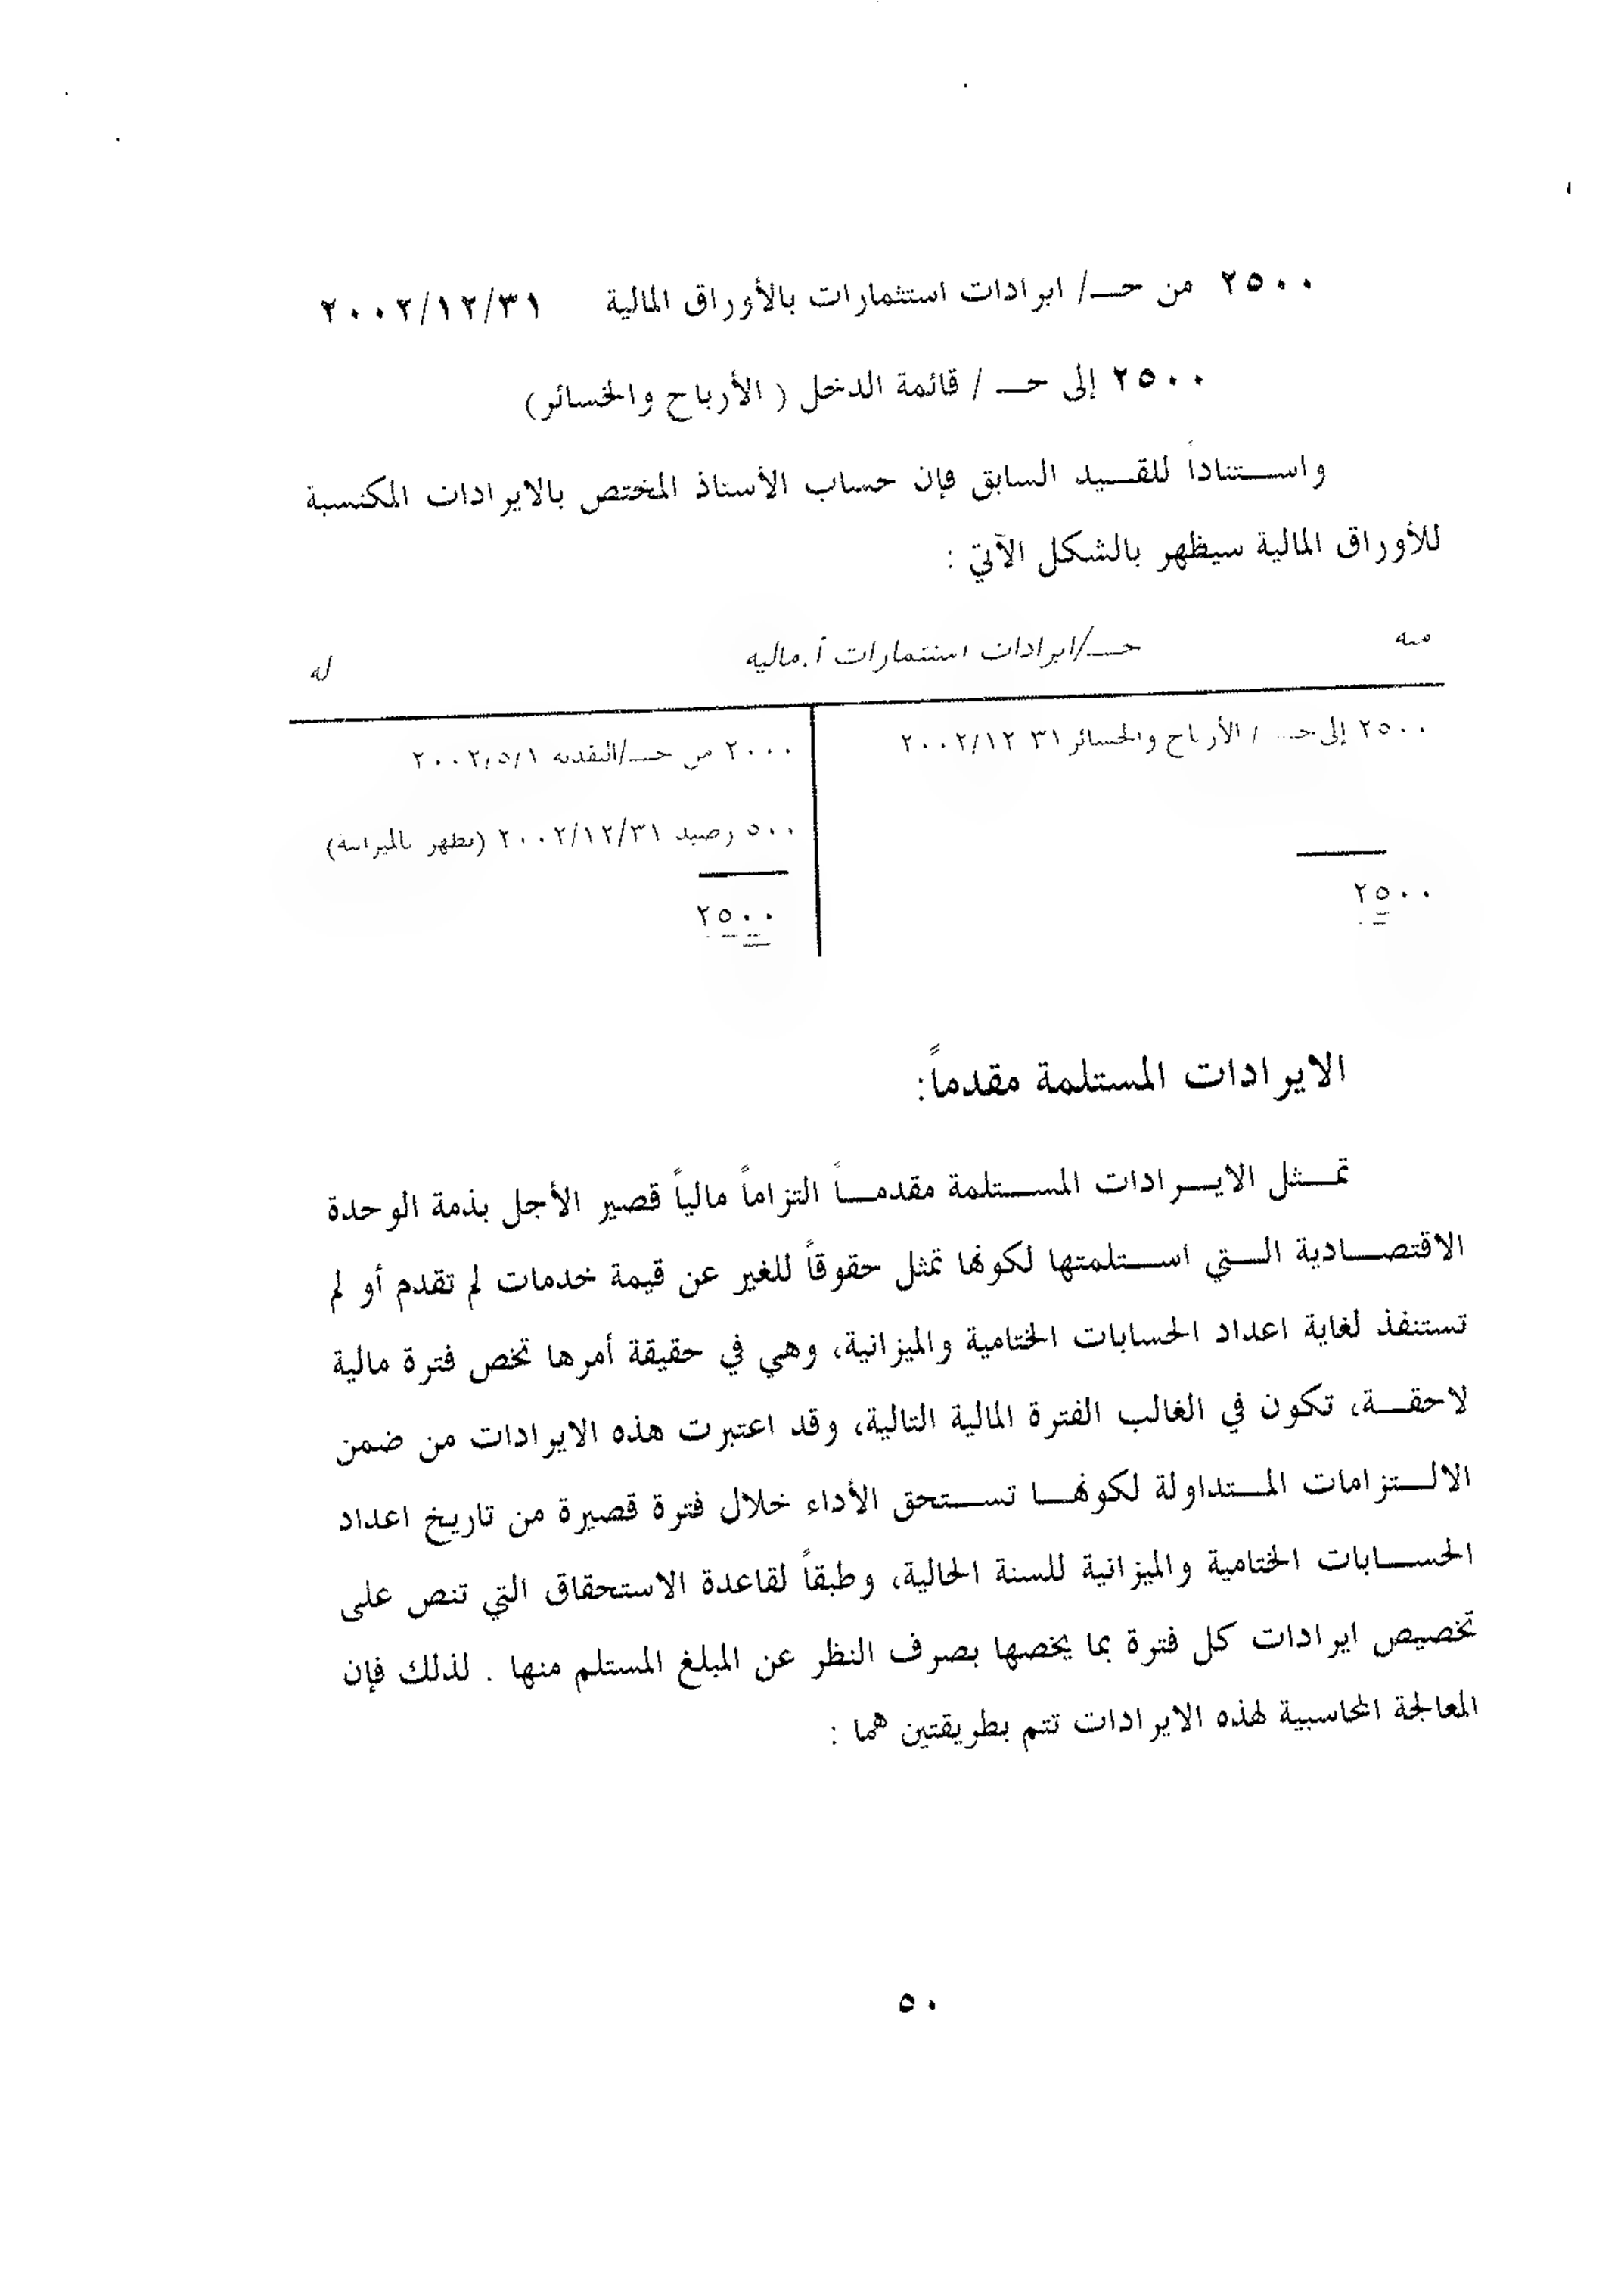 ٢٥٠٠ من حــ/ ايرادات استثمارات بالأوراق المالية ٢٠٠٢/١٢/٣١
٢٥٠٠ إلى حــ / قائمة الدخل ( الأرباح والخسائر)
واستناداً للقيد السابق فإن حساب الأستاذ المختص بالايرادات المكتسبة
للأوراق المالية سيظهر بالشكل الآتي :
منه حــ/ايرادات استثمارات أ.ماليه له
٢٥٠٠ إلى حــ / الأرباح والخسائر ٣١ ٢٠٠٢/١٢ ٢٠٠٠ من حــ/النقديه ٢٠٠٢/٥/١
٥٠٠ رصيد ٢٠٠٢/١٢/٣١ (يظهر بالميزانية)
٢٥٠٠ ٢٥٠٠
الايرادات المستلمة مقدماً:
تمثل الايرادات المستلمة مقدماً التزاماً مالياً قصير الأجل بذمة الوحدة
الاقتصادية التي استلمتها لكونها تمثل حقوقاً للغير عن قيمة خدمات لم تقدم أو لم
تستنفذ لغاية اعداد الحسابات الختامية والميزانية، وهي في حقيقة أمرها تخص فترة مالية
لاحقة، تكون في الغالب الفترة المالية التالية، وقد اعتبرت هذه الايرادات من ضمن
الالتزامات المتداولة لكونها تستحق الأداء خلال فترة قصيرة من تاريخ اعداد
الحسابات الختامية والميزانية للسنة الحالية، وطبقاً لقاعدة الاستحقاق التي تنص على
تخصيص ايرادات كل فترة بما يخصها بصرف النظر عن المبلغ المستلم منها . لذلك فإن
المعالجة المحاسبية لهذه الايرادات تتم بطريقتين هما :
٥٠